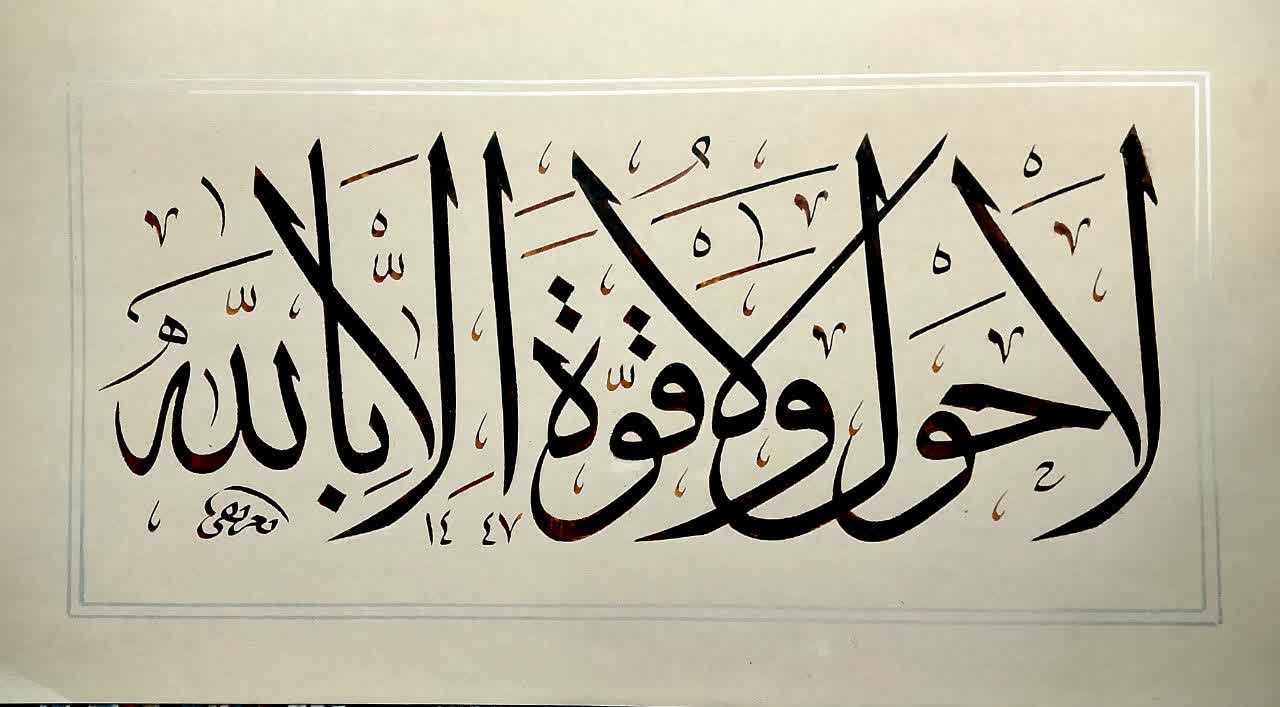 لَا حَوْلَ وَلَا قُوَّةَ اِلَّا بِاللّٰهِ
١٤٤٧